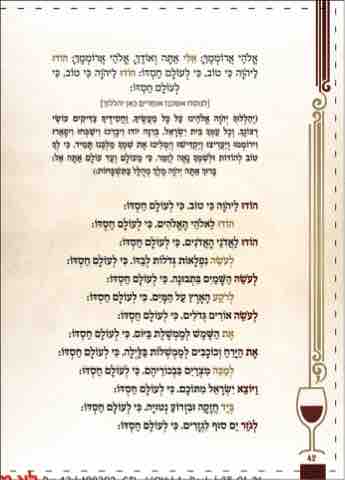 אֱלֹהַי אֲרוֹמְמֶךָּ: אֵלִי אַתָּה וְאוֹדֶךָּ, אֱלֹהַי אֲרוֹמְמֶךָּ: הוֹדוּ
לַיהֹוָה כִּי טוֹב, כִּי לְעוֹלָם חַסְדּוֹ: הוֹדוּ לַיהֹוָה כִּי טוֹב, כִּי
לְעוֹלָם חַסְדּוֹ:
[לנוסח אשכנז אומרים כאן יהללוך]
(יְהַלְלוּךָ יְהֹוָה אֱלֹהֵינוּ עַל כָּל מַעֲשֶׂיךָ, וַחֲסִידֶיךָ צַדִּיקִים עוֹשֵׂי
רְצוֹנֶךָ, וְכָל עַמְּךָ בֵּית יִשְׂרָאֵל, בְּרִנָּה יוֹדוּ וִיבָרְכוּ וִישַׁבְּחוּ וִיפָאֲרוּ
וִירוֹמְמוּ וְיַעֲרִיצוּ וְיַקְדִּישׁוּ וְיַמְלִיכוּ אֶת שִׁמְךָ מַלְכֵּנוּ תָּמִיד, כִּי לְךָ
טוֹב לְהוֹדוֹת וּלְשִׁמְךָ נָאֶה לְזַמֵּר, כִּי מֵעוֹלָם וְעַד עוֹלָם אַתָּה אֵל:
בָּרוּךְ אַתָּה יְהֹוָה מֶלֶךְ מְהֻלָּל בַּתִּשְׁבָּחוֹת:)
הוֹדוּ לַיהֹוָה כִּי טוֹב, כִּי לְעוֹלָם חַסְדּוֹ:
הוֹדוּ לֵאלֹהֵי הָאֱלֹהִים, כִּי לְעוֹלָם חַסְדּוֹ:
הוֹדוּ לַאֲדֹנֵי הָאֲדֹנִים, כִּי לְעוֹלָם חַסְדּוֹ:
לְעֹשֵׂה נִפְלָאוֹת גְּדֹלוֹת לְבַדּוֹ, כִּי לְעוֹלָם חַסְדּוֹ:
לְעֹשֵׂה הַשָּׁמַיִם בִּתְבוּנָה, כִּי לְעוֹלָם חַסְדּוֹ:
לְרֹקַע הָאָרֶץ עַל הַמָּיִם, כִּי לְעוֹלָם חַסְדּוֹ:
לְעֹשֵׂה אוֹרִים גְּדֹלִים, כִּי לְעוֹלָם חַסְדּוֹ:
אֶת הַשֶּׁמֶשׁ לְמֶמְשֶׁלֶת בַּיּוֹם, כִּי לְעוֹלָם חַסְדּוֹ:
אֶת הַיָּרֵחַ וְכוֹכָבִים לְמֶמְשְׁלוֹת בַּלָּיְלָה, כִּי לְעוֹלָם חַסְדּוֹ:
לְמַכֵּה מִצְרַיִם בִּבְכוֹרֵיהֶם, כִּי לְעוֹלָם חַסְדּוֹ:
וַיּוֹצֵא יִשְׂרָאֵל מִתּוֹכָם, כִּי לְעוֹלָם חַסְדּוֹ:
בְּיָד חֲזָקָה וּבִזְרוֹעַ נְטוּיָה, כִּי לְעוֹלָם חַסְדּוֹ:
לְגֹזֵר יַם סוּף לִגְזָרִים, כִּי לְעוֹלָם חַסְדּוֹ:
42